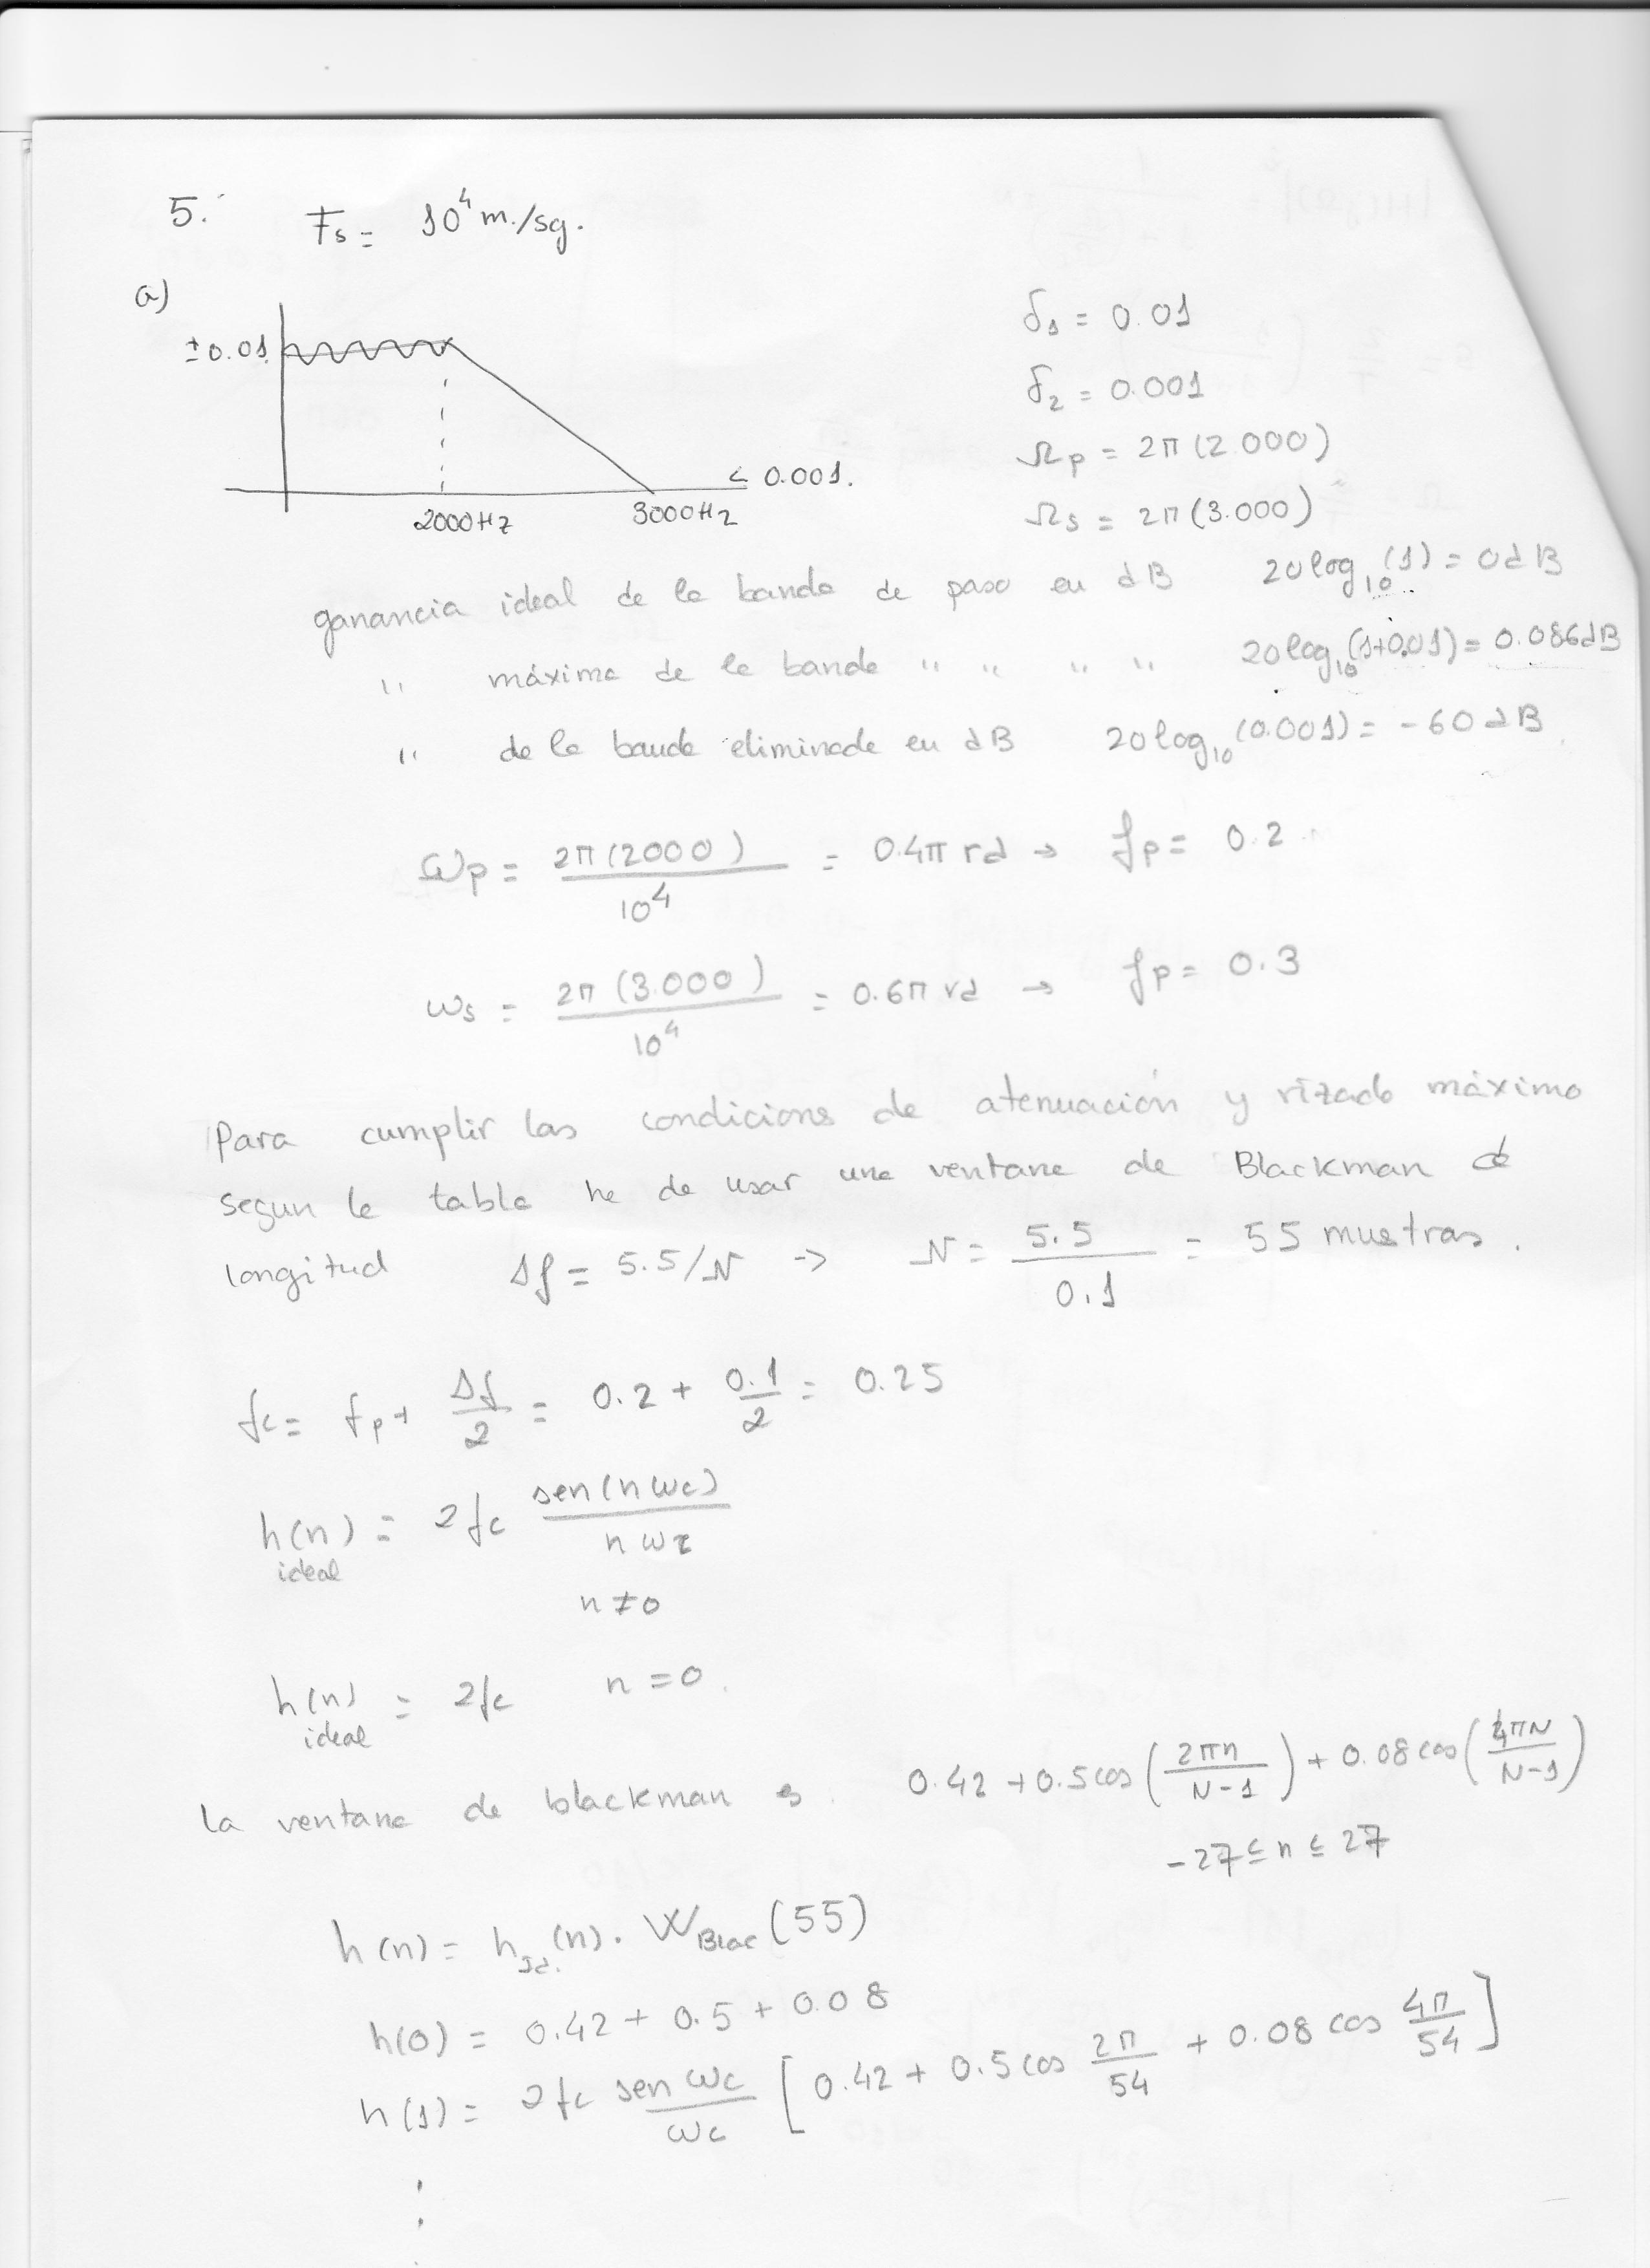 5. Fs = 10⁴ m./sg.
a)
±0.01
< 0.001.
2000Hz 3000Hz
δ₁ = 0.01
δ₂ = 0.001
Ωp = 2π(2.000)
Ωs = 2π(3.000)
ganancia ideal de la banda de paso en dB 20log₁₀(1) = 0dB
" máxima de la banda " " " " 20log₁₀(1+0.01) = 0.086dB
" de la banda eliminada en dB 20log₁₀(0.001) = -60dB.
ωp = 2π(2000)/10⁴ = 0.4π rd → fp = 0.2
ωs = 2π(3.000)/10⁴ = 0.6π rd → fp = 0.3
Para cumplir las condicions de atenuación y rizado máximo
segun la tabla he de usar una ventana de Blackman de
longitud Δf = 5.5/N → N = 5.5/0.1 = 55 muestras.
fc = fp + Δf/2 = 0.2 + 0.1/2 = 0.25
h(n) ideal = 2fc sen(nωc)/nωc
n≠0
h(n) ideal = 2fc n=0.
la ventana de blackman es 0.42 + 0.5cos(2πn/N-1) + 0.08cos(4πN/N-1)
-27≤n≤27
h(n) = h_Id.(n). W_Blac(55)
h(0) = 0.42 + 0.5 + 0.08
h(1) = 2fc sen ωc/ωc [0.42 + 0.5cos 2π/54 + 0.08 cos 4π/54]
⋮